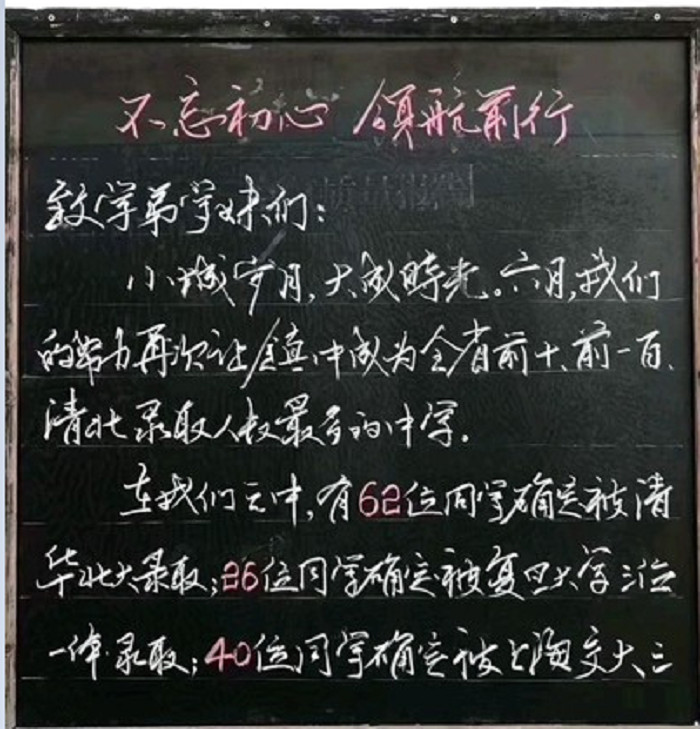 不忘初心 领航前行
致学弟学妹们:
小城岁月,大成時光。六月,我们
的努力再次让镇中成为全省前十、前一百、
清北录取人数最多的中学.
在我们之中,有62位同学确定被清
华北大录取;26位同学确定被复旦大学三位
一体录取;40位同学确定被上海交大三